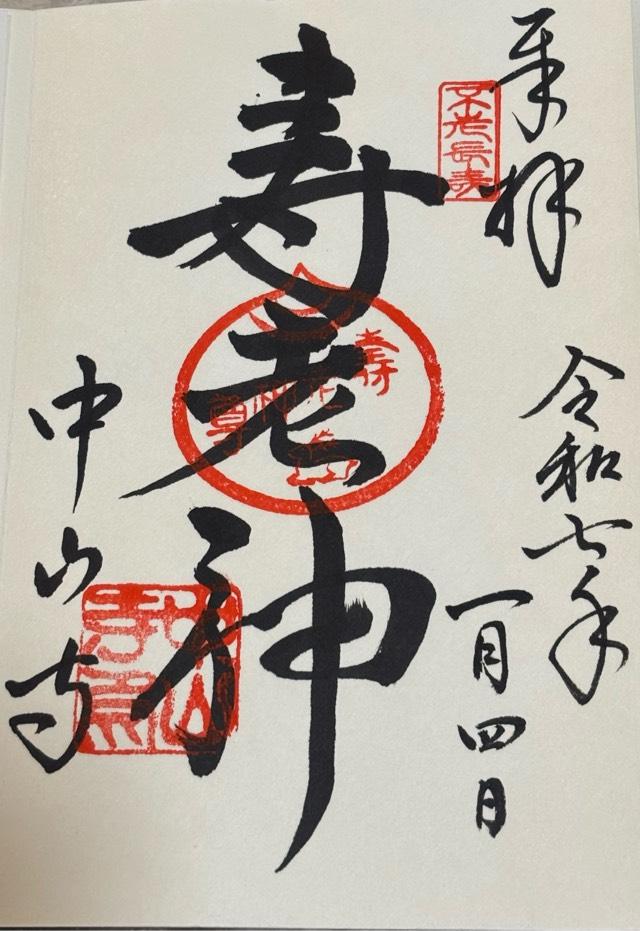 奉拝
不老長寿
令和七年
一月四日
寿老神
中山寺